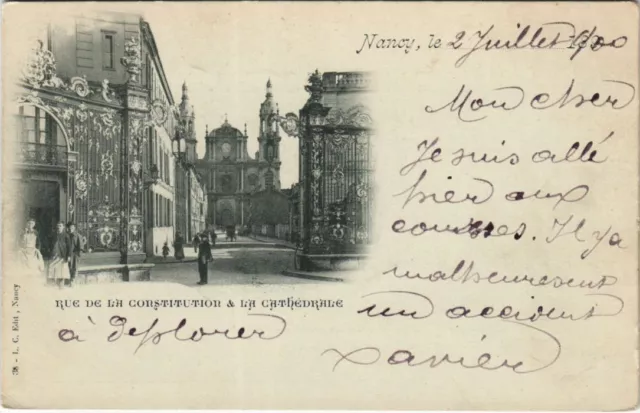 Nancy, le 2 Juillet 1900
Mon cher
Je suis allé
hier aux
courses. Il y a
malheureusement
un accident
à déplorer
Xavier
RUE DE LA CONSTITUTION & LA CATHÉDRALE
38. - L. C. Edit, Nancy